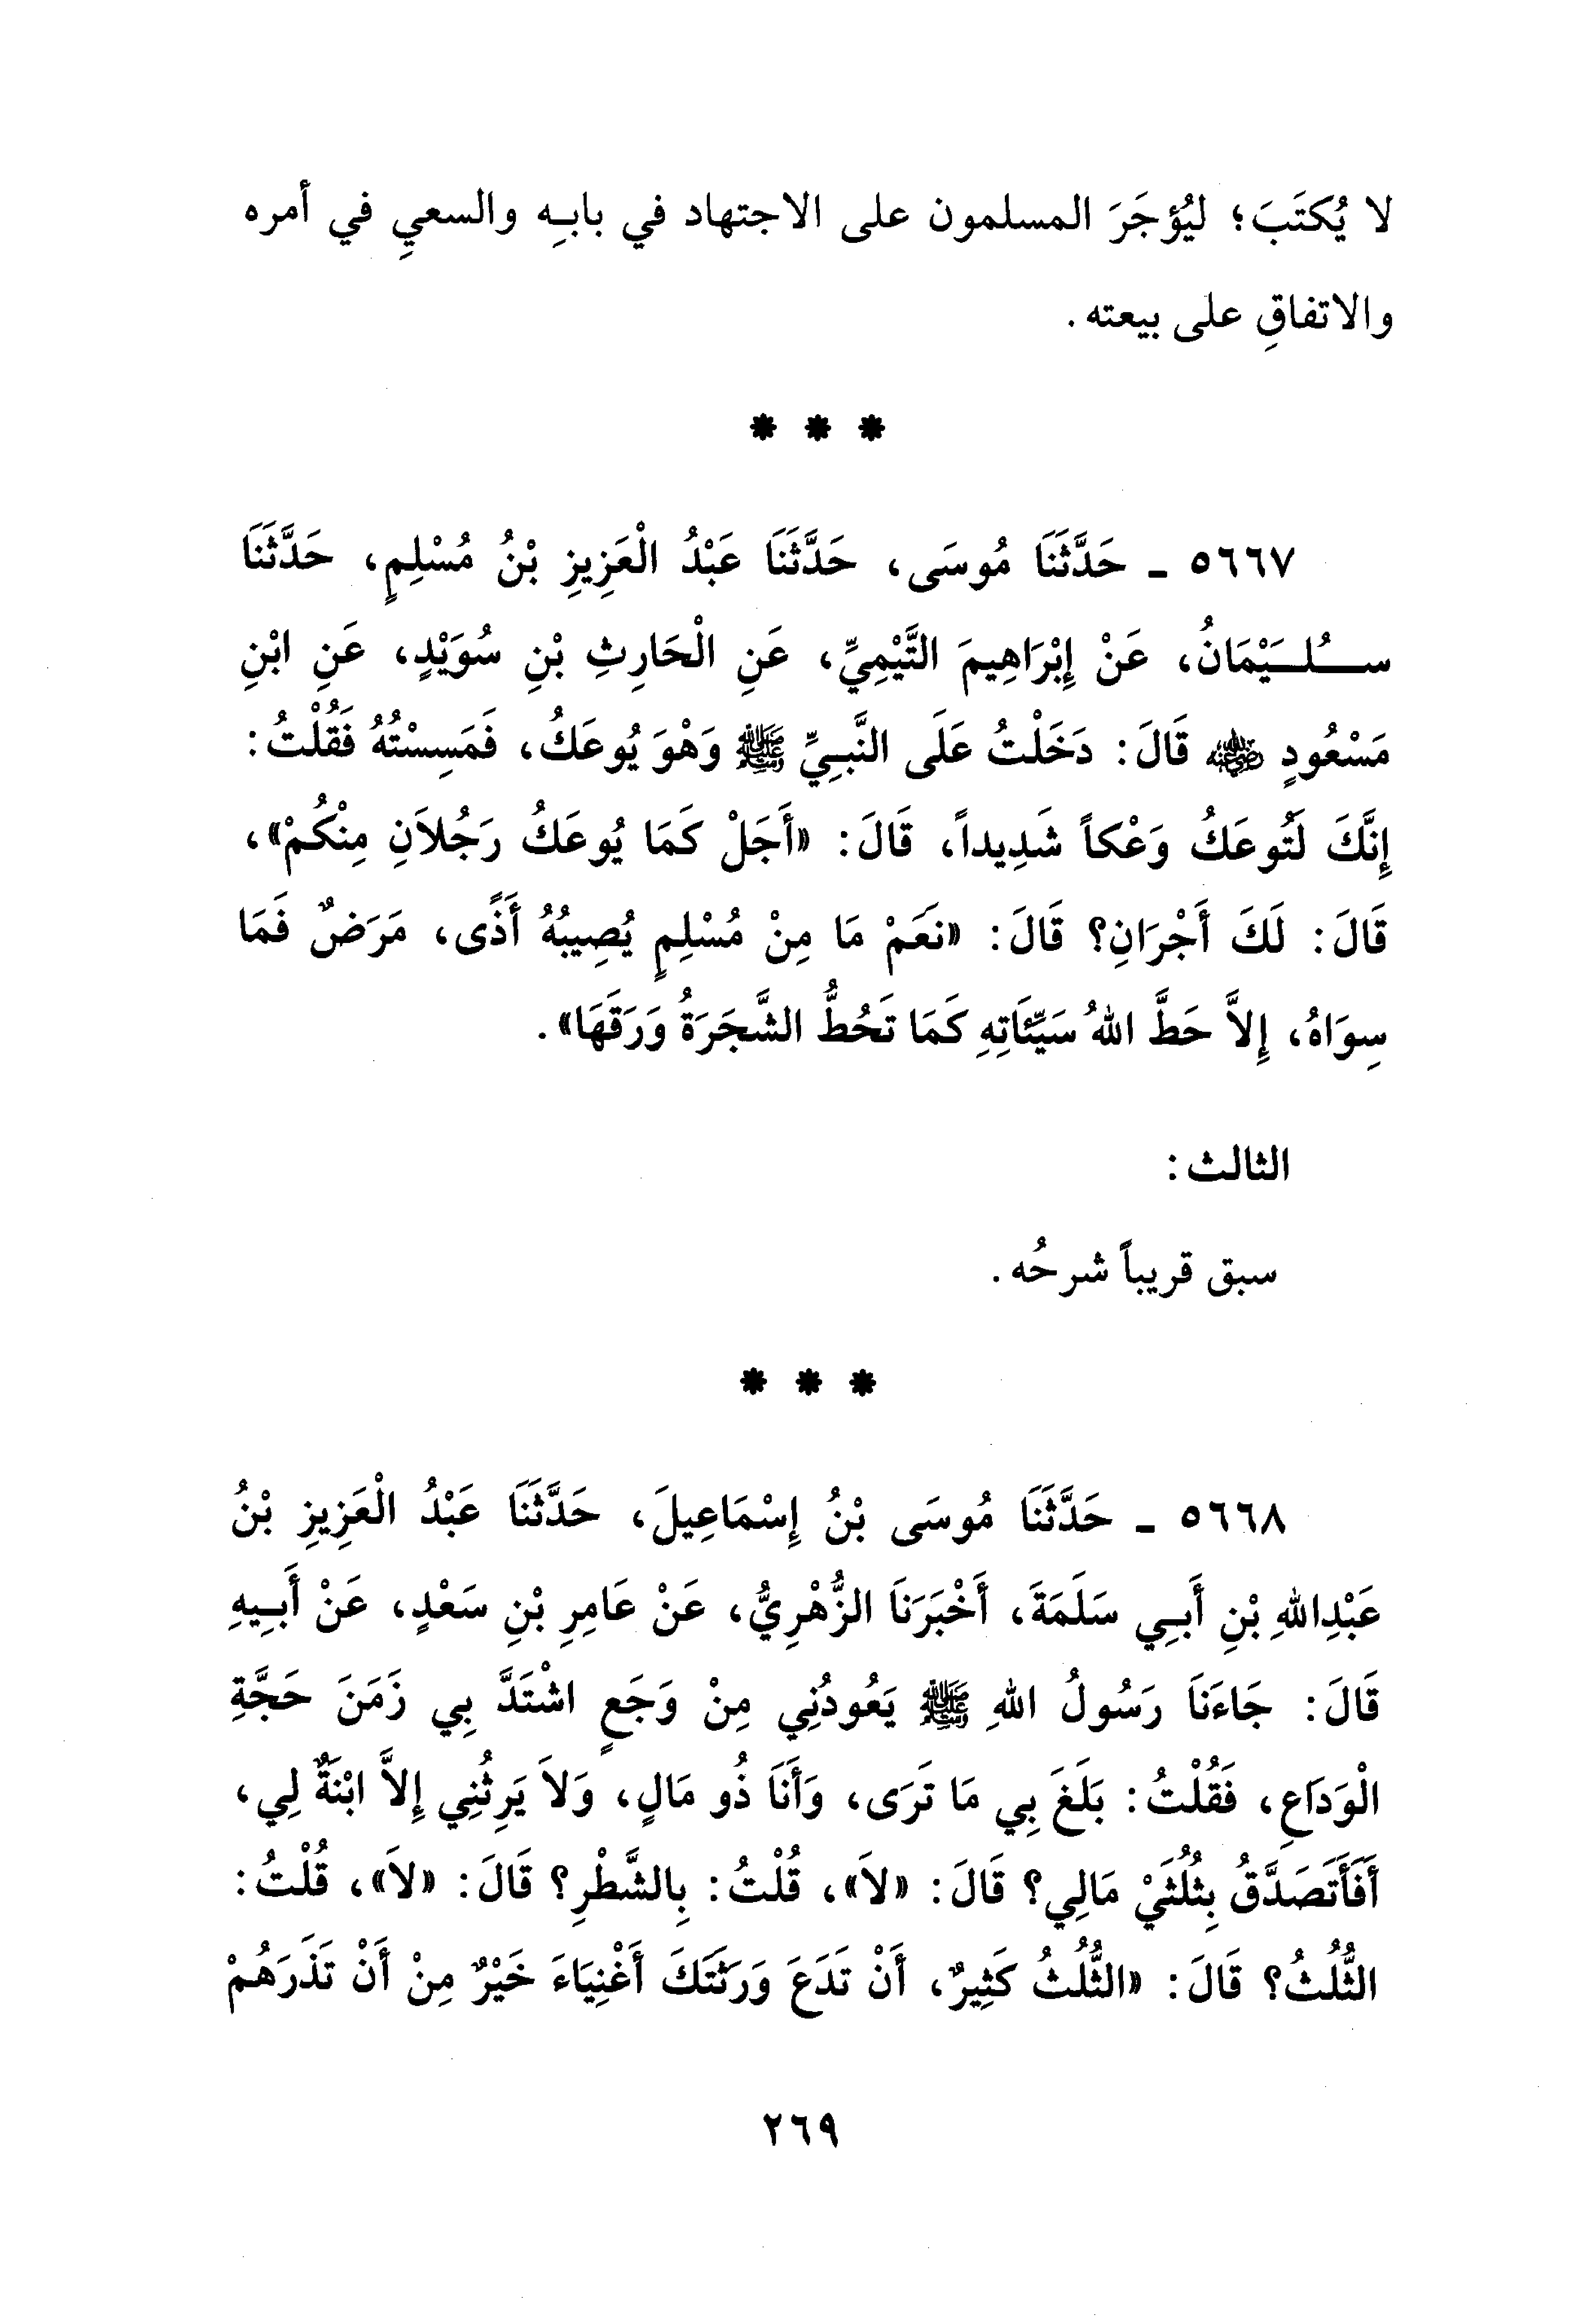 لا يُكتَبَ؛ ليُؤجَرَ المسلمون على الاجتهاد في بابـِه والسعيِ في أمره
والاتفاقِ على بيعته.
* * *
٥٦٦٧ ـ حَدَّثَنَا مُوسَى، حَدَّثَنَا عَبْدُ الْعَزِيزِ بْنُ مُسْلِمٍ، حَدَّثَنَا
سُـلَـيْمَانُ، عَنْ إِبْرَاهِيمَ التَّيْمِيِّ، عَنِ الْحَارِثِ بْنِ سُوَيْدٍ، عَنِ ابْنِ
مَسْعُودٍ ﵁ قَالَ: دَخَلْتُ عَلَى النَّبـِيِّ ﷺ وَهْوَ يُوعَكُ، فَمَسِسْتُهُ فَقُلْتُ:
إِنَّكَ لَتُوعَكُ وَعْكاً شَدِيداً، قَالَ: «أَجَلْ كَمَا يُوعَكُ رَجُلاَنِ مِنْكُمْ»،
قَالَ: لَكَ أَجْرَانِ؟ قَالَ: «نَعَمْ مَا مِنْ مُسْلِمٍ يُصِيبُهُ أَذًى، مَرَضٌ فَمَا
سِوَاهُ، إِلاَّ حَطَّ اللهُ سَيِّئَاتِهِ كَمَا تَحُطُّ الشَّجَرَةُ وَرَقَهَا».
الثالث:
سبق قريباً شرحُه.
* * *
٥٦٦٨ ـ حَدَّثَنَا مُوسَى بْنُ إِسْمَاعِيلَ، حَدَّثَنَا عَبْدُ الْعَزِيزِ بْنُ
عَبْدِاللهِ بْنِ أَبـِي سَلَمَةَ، أَخْبَرَنَا الزُّهْرِيُّ، عَنْ عَامِرِ بْنِ سَعْدٍ، عَنْ أَبـِيهِ
قَالَ: جَاءَنَا رَسُولُ اللهِ ﷺ يَعُودُنِي مِنْ وَجَعٍ اشْتَدَّ بِي زَمَنَ حَجَّةِ
الْوَدَاعِ، فَقُلْتُ: بَلَغَ بِي مَا تَرَى، وَأَنَا ذُو مَالٍ، وَلاَ يَرِثُنِي إِلاَّ ابْنَةٌ لِي،
أَفَأَتَصَدَّقُ بِثُلُثَيْ مَالِي؟ قَالَ: «لاَ»، قُلْتُ: بِالشَّطْرِ؟ قَالَ: «لاَ»، قُلْتُ:
الثُّلُثُ؟ قَالَ: «الثُّلُثُ كَثِيرٌ، أَنْ تَدَعَ وَرَثَتَكَ أَغْنِيَاءَ خَيْرٌ مِنْ أَنْ تَذَرَهُمْ
٢٦٩